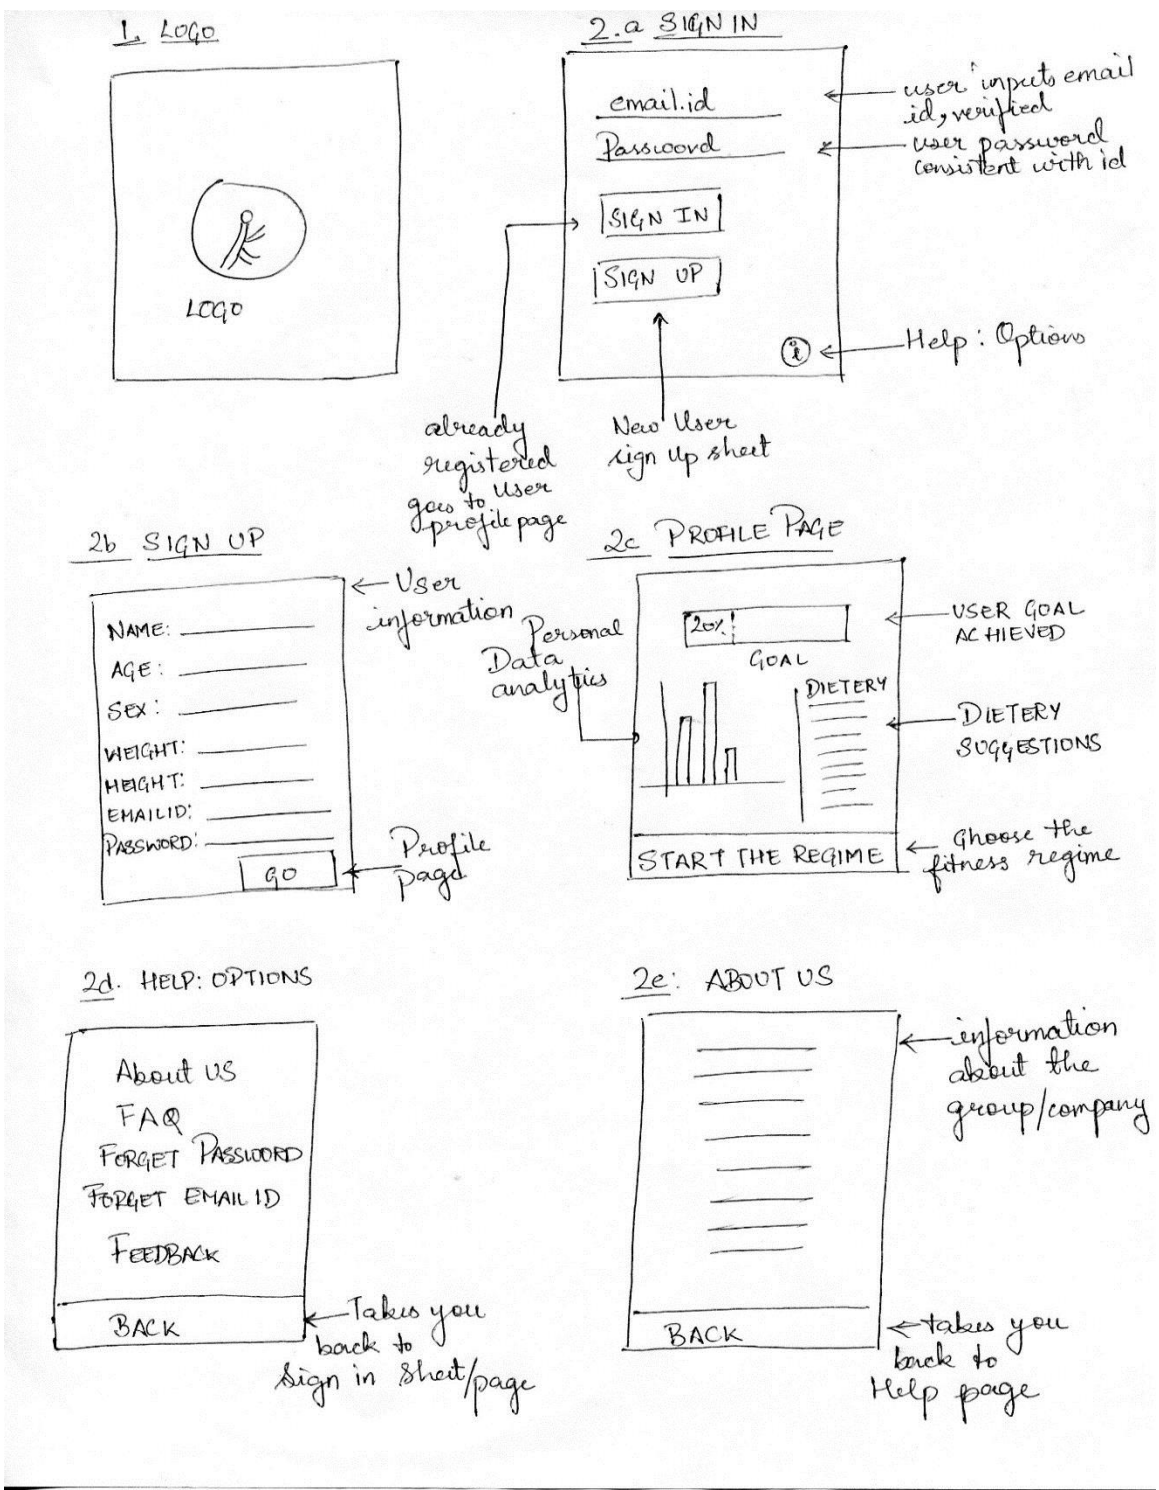 1. LOGO
LOGO
2.a SIGN IN
email.id
Password
SIGN IN
SIGN UP
i
user inputs email
id, verified
user password
consistent with id
Help: Options
already
registered
goes to User
profile page
New User
sign up sheet
2b SIGN UP
NAME:
AGE:
SEX:
WEIGHT:
HEIGHT:
EMAILID:
PASSWORD:
GO
User
information
Profile
page
2c PROFILE PAGE
20%
GOAL
DIETERY
START THE REGIME
Personal
Data
analytics
USER GOAL
ACHIEVED
DIETERY
SUGGESTIONS
Choose the
fitness regime
2d. HELP: OPTIONS
About US
FAQ
FORGET PASSWORD
FORGET EMAIL ID
FEEDBACK
BACK
Takes you
back to
Sign in Sheet/page
2e: ABOUT US
BACK
information
about the
group/company
takes you
back to
Help page